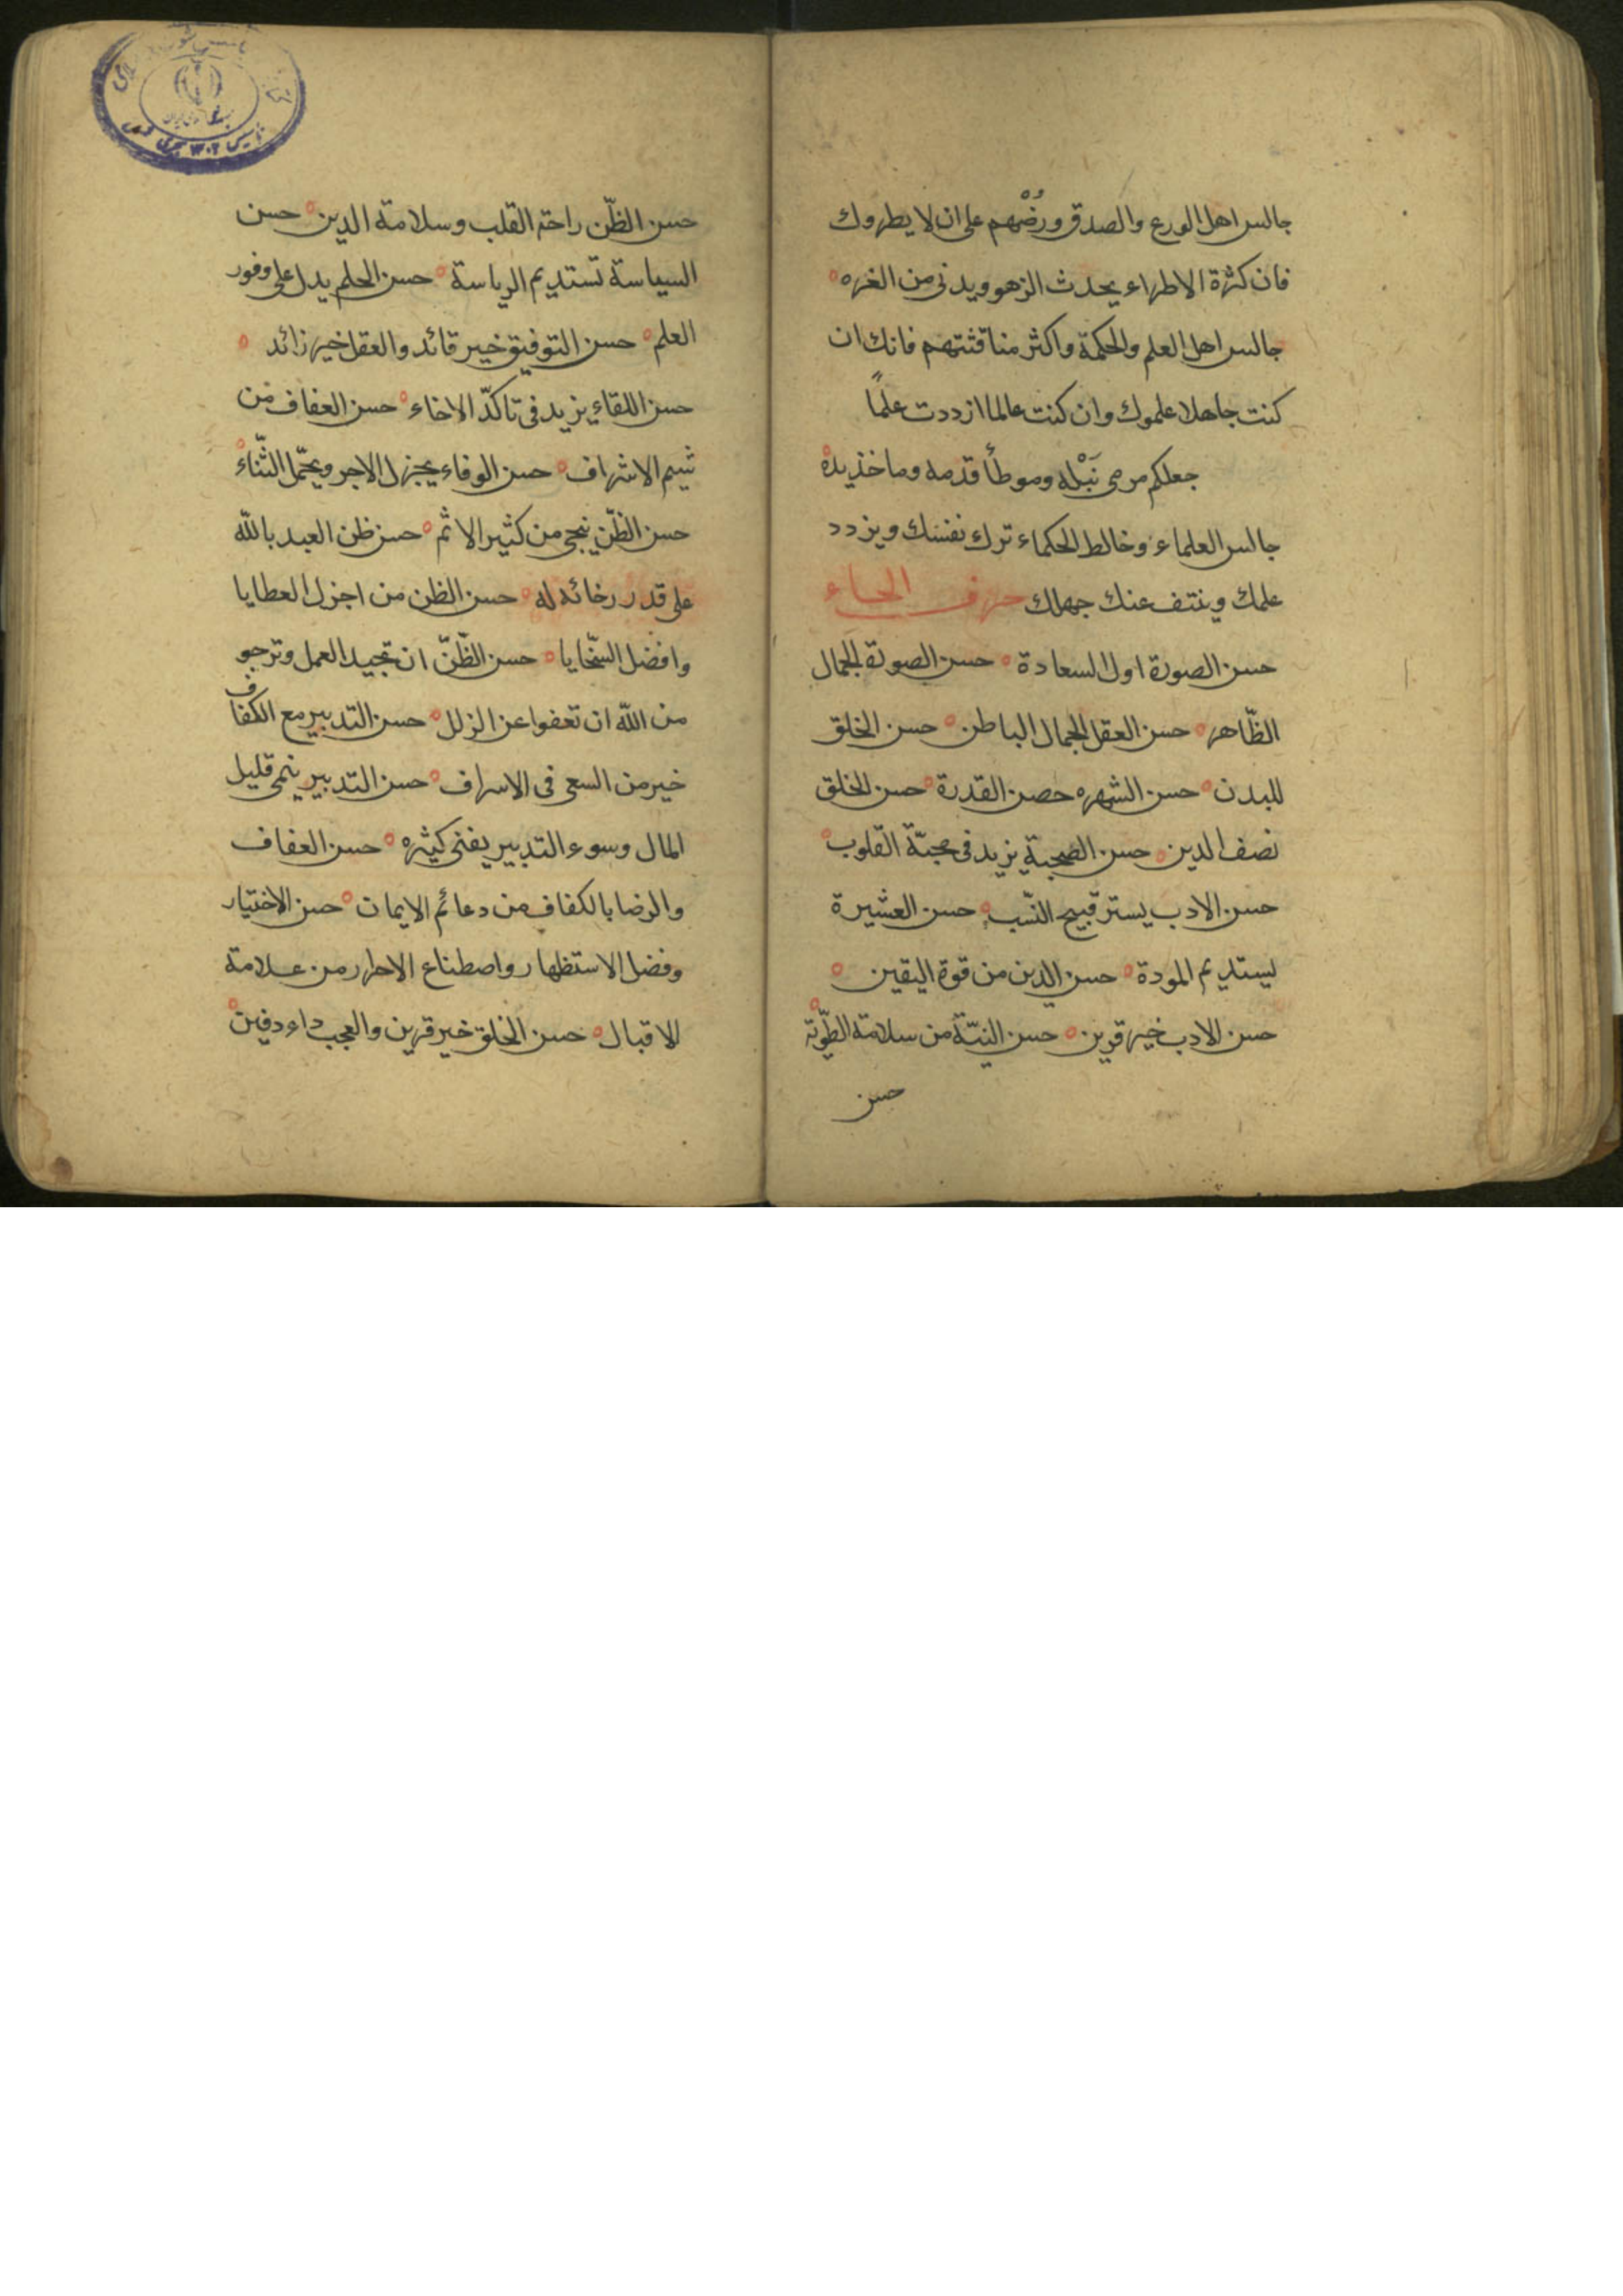 جالس اهل الورع والصدق ورُضْهم على ان لا يطروك
فان كثرة الاطراء يحدث الزهو ويدنى من الغره
جالس اهل العلم والحكمة واكثر مناقثتهم فانك ان
كنت جاهلا علموك وان كنت عالما ازددت علمًا
جعلكم مرمى نَبْله وموطأ قدمه وماخذ يده
جالس العلماء وخالط الحكماء ترك نفسك ويزدد
علمك وينتف عنك جهلك حرف الحاء
حسن الصورة اول السعادة حسن الصورة الجمال
الظّاهر حسن العقل الجمال الباطن حسن الخلق
للبدن حسن الشهره حصن القدرة حسن الخلق
نصف الدين حسن الصّحبة يزيد فى محبّة القلوب
حسن الادب يستر قبيح النّسب حسن العشيرة
يستديم المودة حسن الدين من قوة اليقين
حسن الادب خير قرين حسن النيّة من سلامة الطّويّة
حسن
حسن الظّن راحة القلب وسلامة الدين حسن
السياسة تستديم الرياسة حسن الحلم يدل على وفور
العلم حسن التوفيق خير قائد والعقل خير زائد
حسن اللقاء يزيد فى تاكدّ الاخاء حسن العفاف من
شيم الاشراف حسن الوفاء يجزل الاجر ويجمّل الثّناء
حسن الظّن ينجى من كثير الاثم حسن ظن العبد بالله
على قدر رخائه له حسن الظن من اجزل العطايا
وافضل السّخايا حسن الظّنّ ان تجيد العمل وترجو
من الله ان تعفوا عن الزلل حسن التدبير مع الكفاف
خير من السعى فى الاسراف حسن التدبير ينمى قليل
المال وسوء التدبير يفنى كثيره حسن العفاف
والرضا بالكفاف من دعائم الايمان حسن الاختيار
وفضل الاستظهار واصطناع الاحرار من علامة
الاقبال حسن الخلق خير قرين والعجب داء دفين